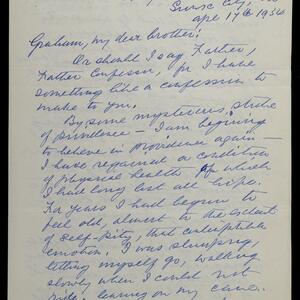 City,
17th 1934
Graham, my dear brother!
Or should I say Father,
Father Confessor, for I have
something like a confession to
make to you.
By some mysterious stroke
of Providence – I am beginning
to believe in Providence again –
I have regained a condition
of physical health of which
I had long lost all hope.
For years I had begun to
feel old, almost to the extent
of self-pity, that contemptible
emotion. I was slumping,
letting myself go, walking
slowly when I could not
ride, leaning on my cane.